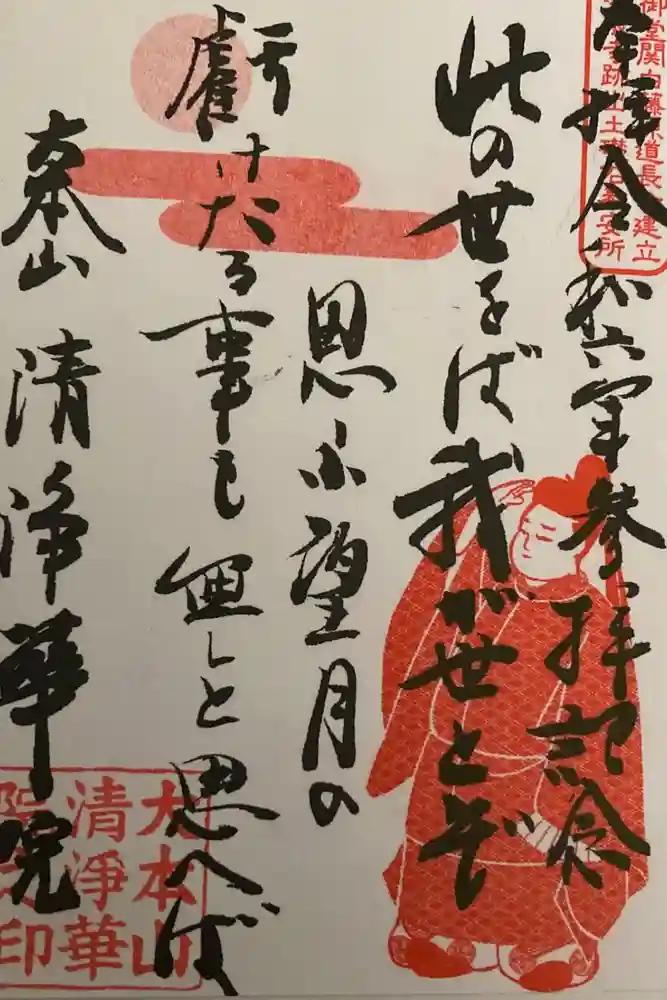 奉拝 令和六年参拝記念
此の世をば我が世とぞ
思ふ望月の
虧けたる事も無しと思へば
大本山 清浄華院
御堂関白藤原道長 建立
土御門 安所
大本山
清浄華
院之印